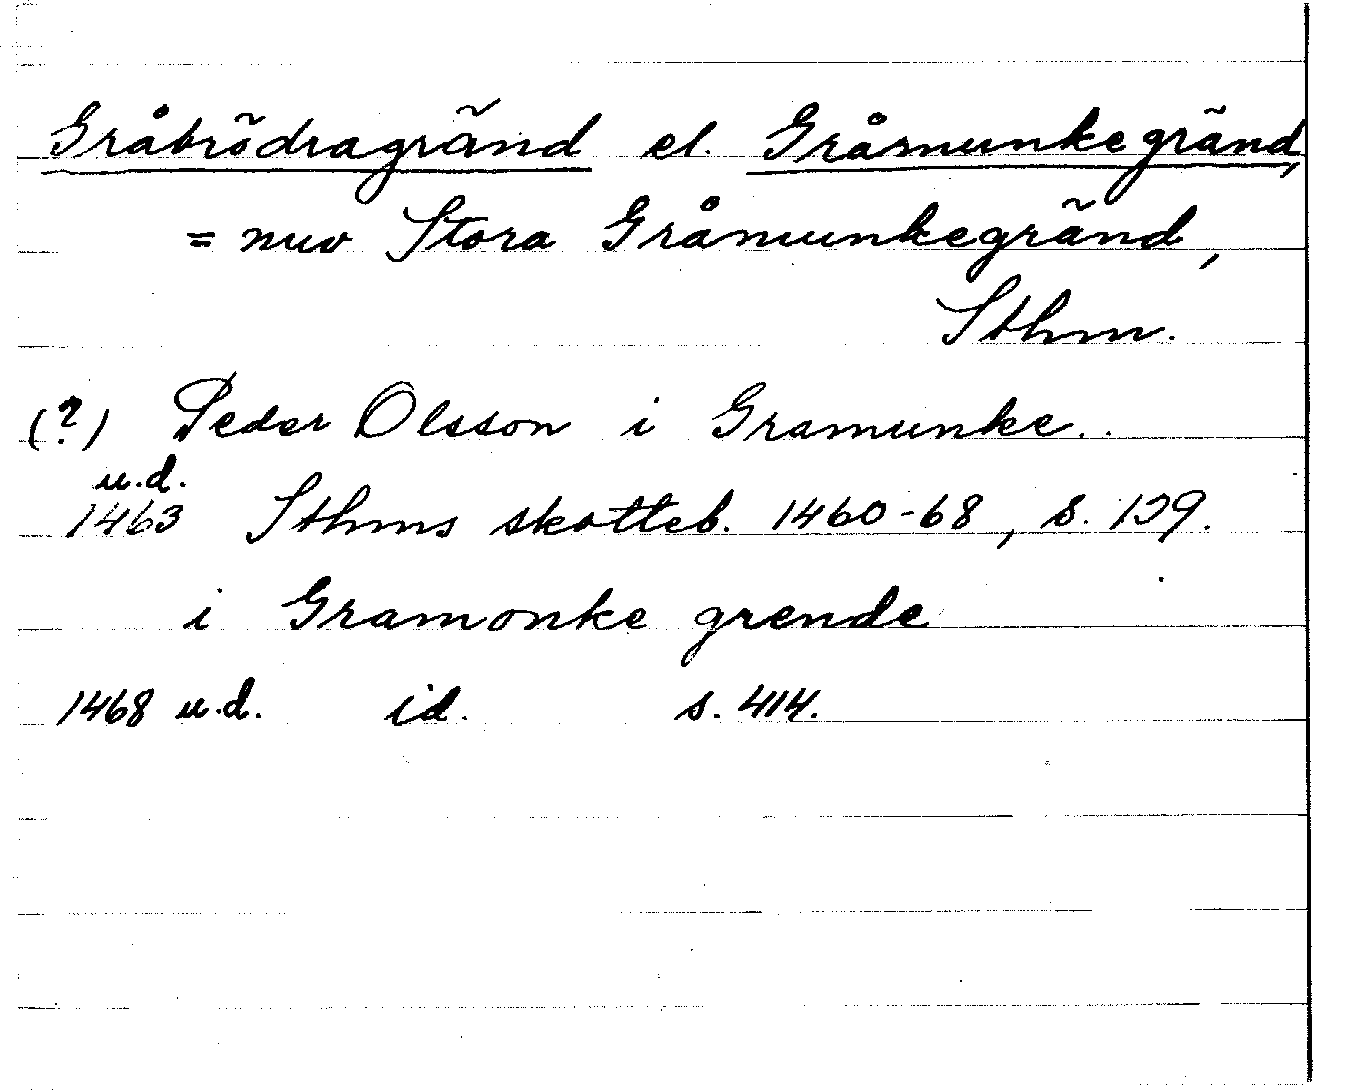 Gråbrödragränd el. Gråmunkegränd,
= nuv Stora Gråmunkegränd,
Sthm.
(?) Peder Olsson i Gramunke..
u.d.
1463 Sthms skotteb. 1460-68, s. 129.
i Gramonke grende
1468 u.d. id. s. 414.